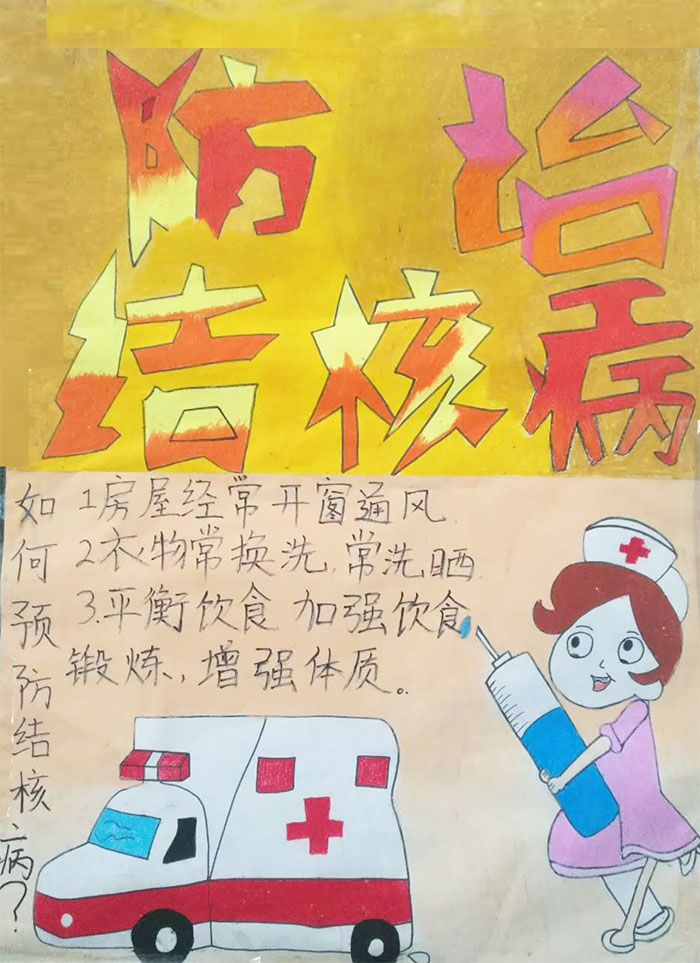 防治
结核病
如何预防结核病?
1房屋经常开窗通风.
2衣物常换洗,常洗晒.
3.平衡饮食 加强饮食
锻炼,增强体质。